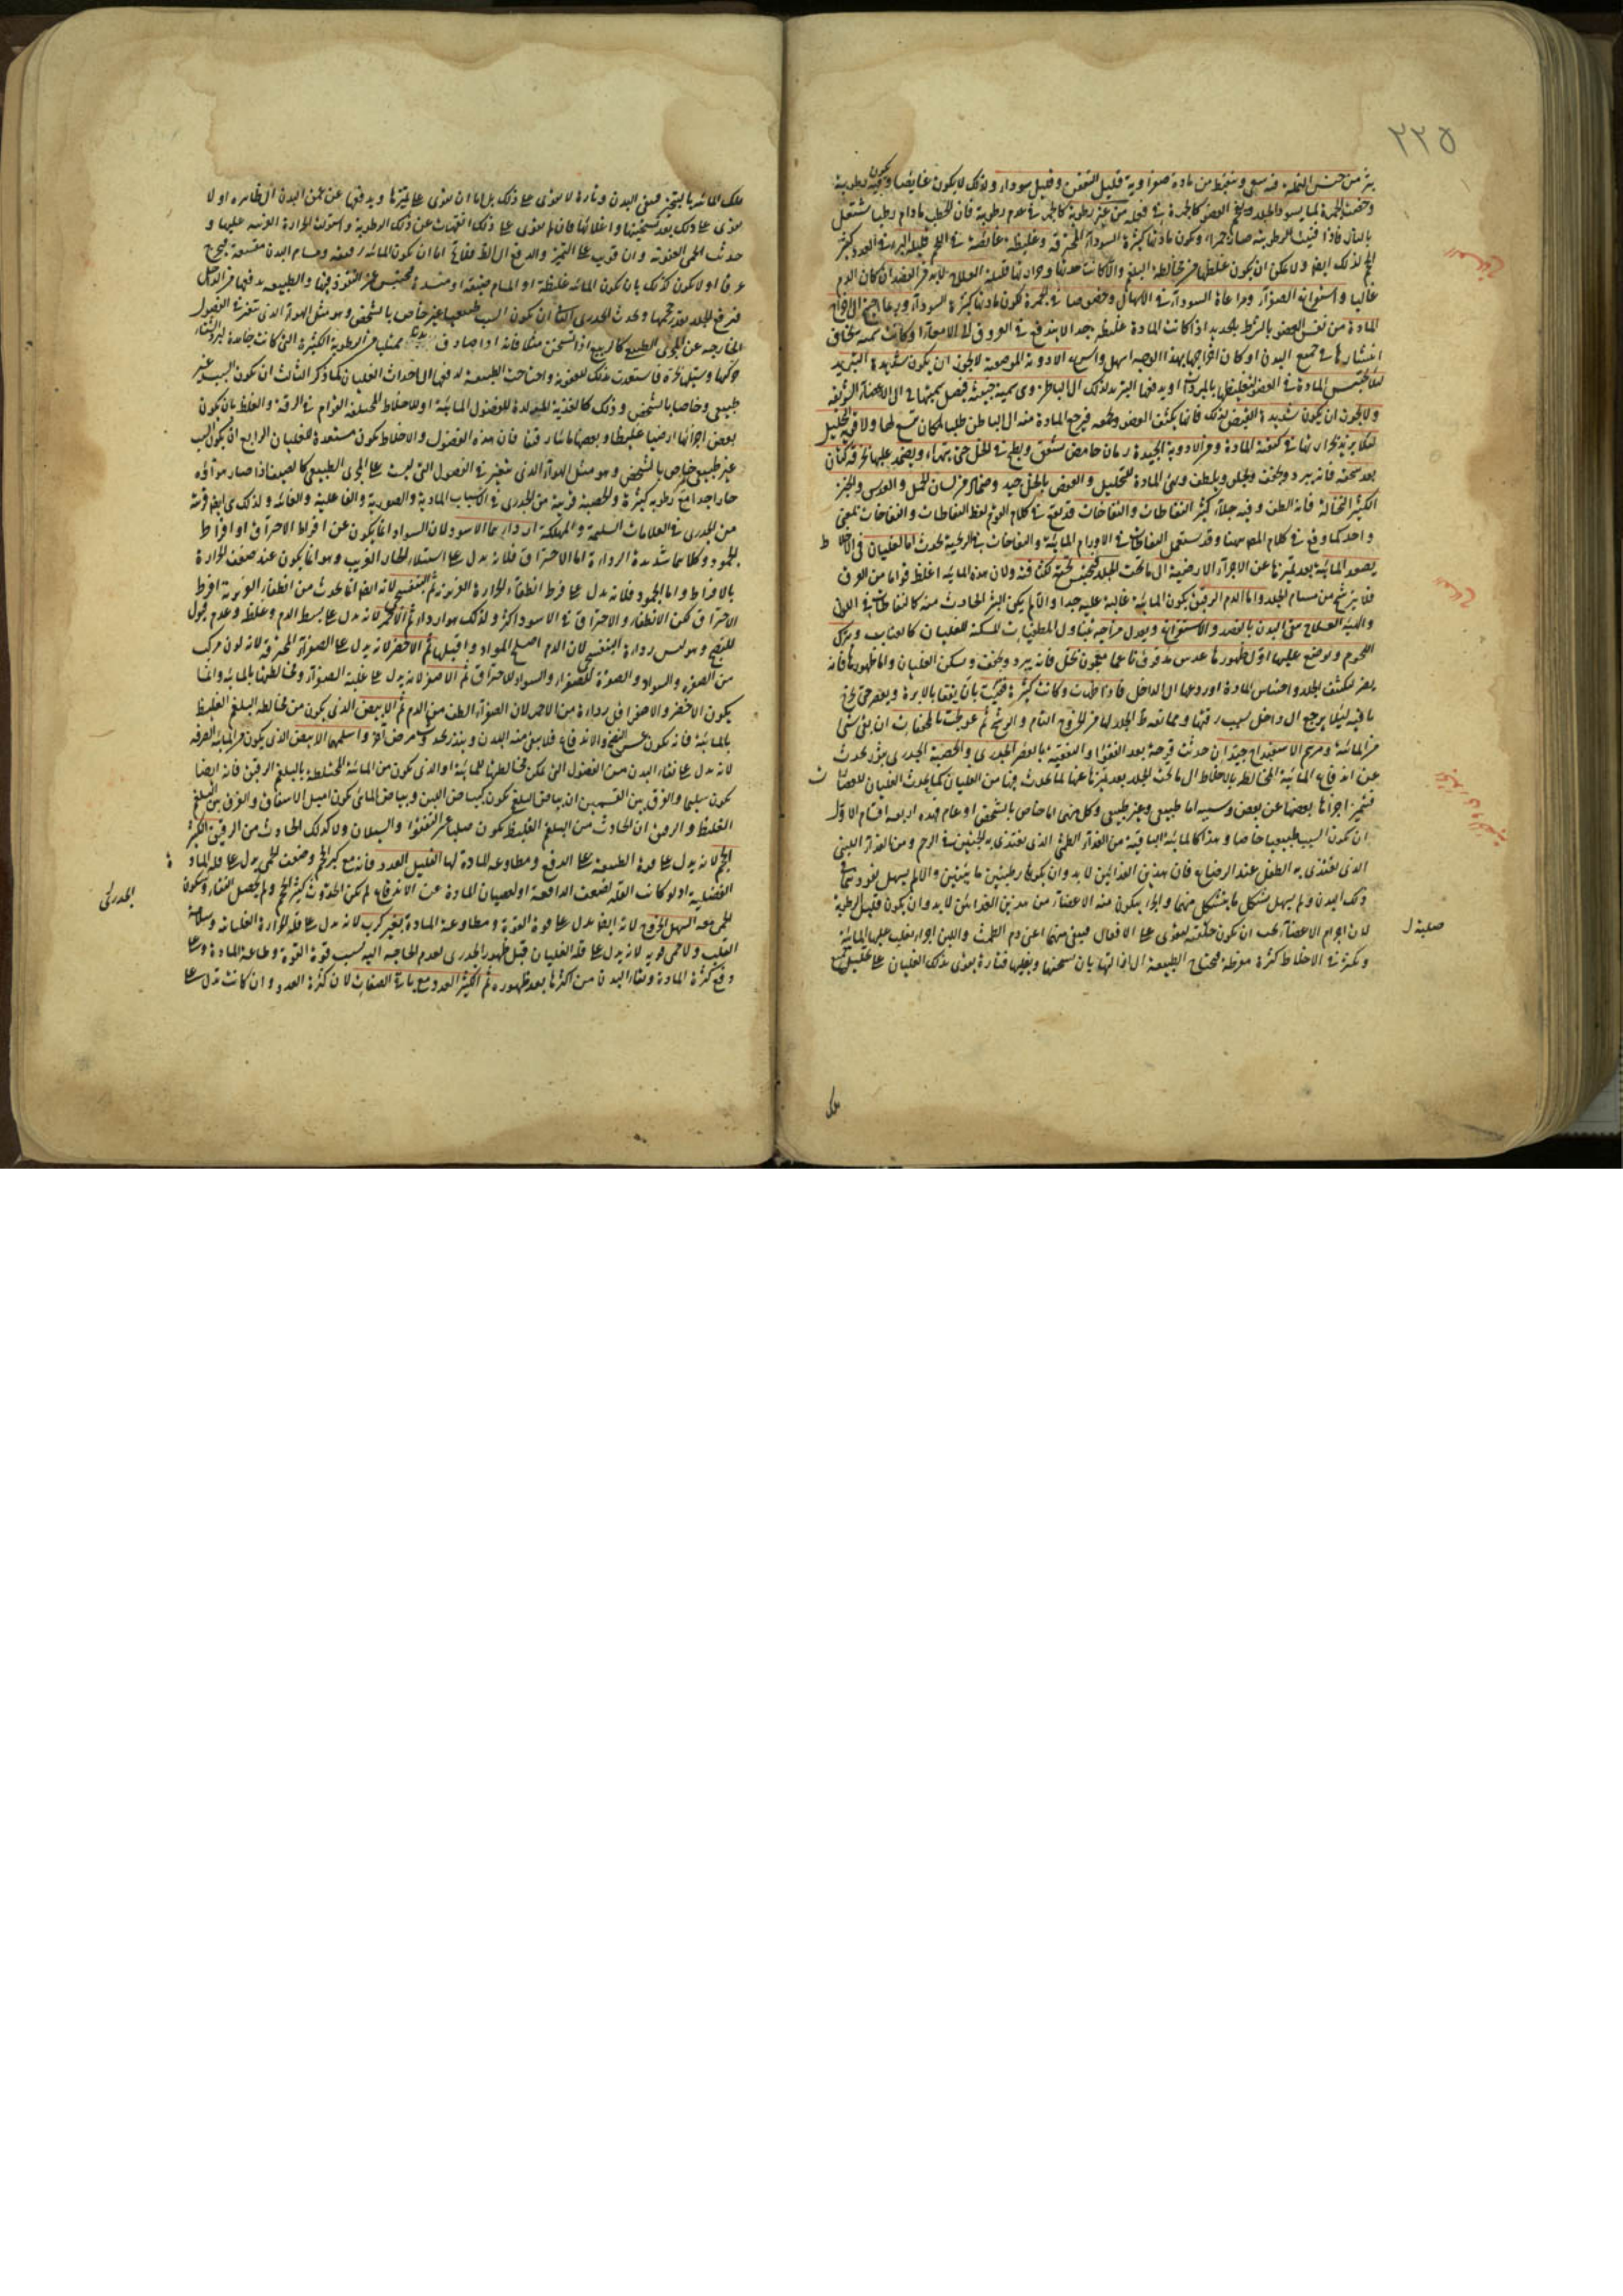 ٢٢٥
بثر من جنس النملة فيه سعى وتنفط من مادة صفراوية قليل التعفن وقليل سوداء ولذلك لا يكون غائصا ويكون فيه رطوبة
وخصت الجمرة بما يسود الجلد العضو كالجمرة في من غير رطوبة كالجمر في عدم رطوبة فان الحطب ما دام رطبا يشتعل
بالنار فاذا فنيت الرطوبة صار جمرا ويكون مادتها كثيرة السوداء المحترقة وغليظة غائصة في اللحم قليلة البر في العدد كبيرة
الحجم لذلك ايضا ولا يمكن ان يكون غلظها من مخالطة البلغم والا كانت حدتها وحرارتها قليلة العلاج لا بد من الفصد ان كان الدم
غالبا واستفراغ الصفراء ومراعاة السوداء في الاسهال وخصوصا في الجمرة لكون مادتها كثيرة السوداء وربما احتيج الى اخراج
المادة من نفس العضو بالشرط بالحديد اذا كانت المادة غليظة جدا لا يندفع في العروق الى الامعاء او كانت سمية يخاف
انتشارها في جميع البدن او كان اخراجها بهذا الوجه اسهل واسرع الادوية الموضعية لا يجوز ان يكون شديدة التبريد
لئلا يحتبس المادة في العضو لتغليظها بالمبردات او يدفعها التبريد لذلك الى الباطن وهي سمية خبيثة فيصل سميتها الى الاعضاء الرئيسة
ولا يجوز ان يكون شديدة القبض لذلك فانها يكثف العضو ويجمعه فيرجع المادة منه الى الباطن طلبا لمكان تسع لها ولا قوية التحليل
لئلا يزيد بحرارتها في كيفية المادة ومن الادوية الجيدة رمان حامض يشقق ويطبخ في الخل حتى يتهرأ ويضمد عليها بخرقة كتان
بعد سحقه فانه يبرد ويجفف ويحلل ويلطف ويهيئ المادة للتحليل والعفص بالخل جيد وضماد من لسان الحمل والعدس والخبز
الكثير النخالة فانه الطف وفيه جلاء كثير النفاطات والنفاخات قد يقع في كلام القوم لفظ النفاطات والنفاخات بمعنى
واحد كما وقع في كلام المص ههنا وقد يستعمل النفاطات في الاورام المائية والنفاخات في الريحية يحدث اما لغليان في الاخلاط
يصعد المائية بعد تميزها عن الاجزاء الارضية الى ما تحت الجلد فيحتبس تحته لكثافته ولان هذه المائية اغلظ قواما من العرق
فلا يترشح من مسام الجلد واما لدم الرقيق يكون المائية غالبة عليه جدا والا لم يكن البثر الحادث منه كالنفاطات في اللون
والدية العلاج تنقى البدن بالفصد والاستفراغ ويعدل مزاجه بتناول المطفيات المسكنة للغليان كالعناب ويترك
اللحوم ويوضع عليها اول ظهورها عدس مدقوق ناعما معجون بخل فانه يبرد ويجفف ويسكن الغليان واما ظهورها فانه
يضر لتكثيف الجلد واحتباس المادة او ردعها الى الداخل فاذا ظهرت وكانت كبيرة فقئت بأن ينقب بالابرة ويعصر حتى يخرج
ما فيه لئلا يرجع الى داخل بسبب رقتها وممانعة الجلد لها من الخروج التام والرشح ثم عولجت بالمجففات ان بقى شئ
من المائية ومرهم الاسفيداج جيد ان حدثت قرحة بعد الفقؤ او التنقية بالعصر الجدرى والحصبة الجدرى بثور يحدث
عن اندفاع المائية المخالطة بالاخلاط الى ما تحت الجلد بعد تميزها عنها لما يحدث فيها من الغليان كما يحدث الغليان للعصارات
فيتميز اجزاؤها بعضها عن بعض وسببه اما طبيعى وغير طبيعى وكل منهما اما خاص بالشخص او عام فهذه اربعة اقسام الاول
ان يكون السبب طبيعيا خاصا وهذا كالمائية الباقية من الغذاء الطمثى الذى يغتذى به الجنين في الرحم ومن الغذاء اللبنى
الذى يغتذى به الطفل عند الرضاع فان هذين الغذائين لا بد وان يكونا رطبين مائيين والا لم يسهل نفوذهما في
ذلك البدن ولم يسهل تشكل ما يتشكل منهما واجزاء يتكون منه الاعضاء من هذين الغذائين لا بد وان يكون قليل الرطوبة
لان اجرام الاعضاء يجب ان يكون خلقته ليقوى على الافعال فيبقى منهما اعنى دم الطمث واللبن اجزاء يغلب عليها المائية
ويكثر في الاخلاط كثرة مفرطة فيحتاج الطبيعة الى ازالتها بان يسخنها ويغليها فتارة يقوى بذلك الغليان على تحليل جميع
صلبة ل
تلك
تلك المائية بالتبخير فيبقى البدن وتارة لا يقوى على ذلك بل اما ان يقوى على تميزها ويدفعها عن عمق البدن الى ظاهره او لا
يقوى على ذلك بعد تسخينها واغلائها فان لم يقوى على ذلك انقهرت عن ذلك الرطوبة واستولت الحرارة الغريبة عليها و
حدثت الحمى العفونية وان قويت على التميز والدفع الى الظاهر فلا يخ اما ان يكون المائية رقيقة ومسام البدن متسعة فيخرج
عرقا او لا يكون كذلك بان يكون المائية غليظة او المسام ضيقة او منسدة فيحتبس عن النفوذ فيها والطبيعة يدفعها من الداخل
فيرفع الجلد بقدر حجمها ويحدث الجدرى الثانى ان يكون السبب طبيعيا غير خاص بالشخص وهو مثل الهواء الذى يتغير في الفصول
الخارجة عن المجرى الطبيع كالربيع اذا تسخن مثلا فانه اذا صادف بدنا ممتليا من الرطوبة الكثيرة التى كانت جامدة لبرد الشتاء
حركها وسيل كثرة فاستعدت بذلك للعفونة واحتاجت الطبيعة لدفعها الى احداث الغليان كما ذكر الثالث ان يكون السبب غير
طبيعى وخاصا بالشخص وذلك كالاغذية المولدة للفضول المائية او للاخلاط المختلفة القوام في الرقة والغلظ بان يكون
بعض اجزائها ارضيا غليظا وبعضها مائيا رقيقا فان هذه الفضول والاخلاط يكون مستعدة للغليان الرابع ان يكون السبب
غير طبيعى خاص بالشخص وهو مثل الهواء الذى يتغير في الفصول التى ليست على المجرى الطبيعى كالصيف اذا صار هواؤه
حارا جدا مع رطوبة كثيرة والحصبة قريبة من الجدرى في الاسباب المادية والصورية والفاعلية والغائية ولذلك هى ايضا قريبة
من الجدرى في العلامات السليمة والمهلكة ارداءهما الاسود لان السواد انما يكون عن افراط الاحتراق او افراط
الجمود وكلاهما شديدة الرداءة اما الاحتراق فلانه يدل على استيلاء الحار الغريب وهو انما يكون عند ضعف الحرارة
بالافراط واما الجمود فلانه يدل على فرط انطفاء الحرارة الغريزية ثم البنفسجى لانه ايضا انما يحدث من انطفاء الغريزية افرط
الاحتراق لكن الانطفاء والاحتراق في الاسود اكثر ولذلك هو ارداء ثم الاحمر لانه يدل على تسلط الدم وغلظ وعدم قبول
للنضج وهو ليس رداءة البنفسجى لان الدم اصلح المواد واقبلها ثم الاخضر لانه يدل على الصفراء المحترقة لانه لون مركب
من الصفرة والسواد والصفرة للصفراء والسواد للاحتراق ثم الاصفر لانه يدل على غلبة الصفراء ومخالطتها بالمائية وانما
يكون الاخضر والاصفر اقل رداءة من الاحمر لان الصفراء الطف من الدم ثم الابيض الذى يكون من مخالطة البلغم الغليظ
بالمائية فانه يكون عسر النضج والاندفاع فلا ينقى منه البدن وينذر بحدوث مرض آخر واسلمها الابيض الذى يكون من المائية الصرفة
لانه يدل على نقاء البدن من الفضول التى يمكن مخالطتها للمائية او الذى يكون من المائية المختلطة بالبلغم الرقيق فانه ايضا
يكون سليما والفرق بين القسمين ان بياض البلغم يكون كبياض اللبن وبياض المائى يكون اميل الاشفاف والفرق بين البلغم
الغليظ والرقيق ان الحادث من البلغم الغليظ يكون صلبا عسر التفقؤ والسيلان ولا كذلك الحادث من الرقيق الكبير
الحجم لانه يدل على قوة الطبيعة على الدفع ومطاوعة المادة لها القليل العدد فانه مع كبر الحجم وضعف الحمى يدل على قلة المادة
الفضلية اذ لو كانت القلة لضعف الدافعة او لعصيان المادة عن الاندفاع لم يكن الحدوث كبير الحجم ولم يحصل النقاء وسكون
الحمى معه السهل الخروج لانه ايضا يدل على قوة القوة ومطاوعة المادة بغير كرب لانه يدل على قلة الحرارة الغليانية وسلامة
القلب ولا حمى قوية لانه يدل على قلة الغليان قبل ظهور الجدرى لعدم الحاجة اليه بسبب قوة القوة وطاعة المادة وعلى
وقع كثرة المادة ونقاء البدن من اكثرها بعد ظهوره ثم الكثير العدد مع باقى الصفات لان كثرة العدد وان كانت تدل على
الجدرى